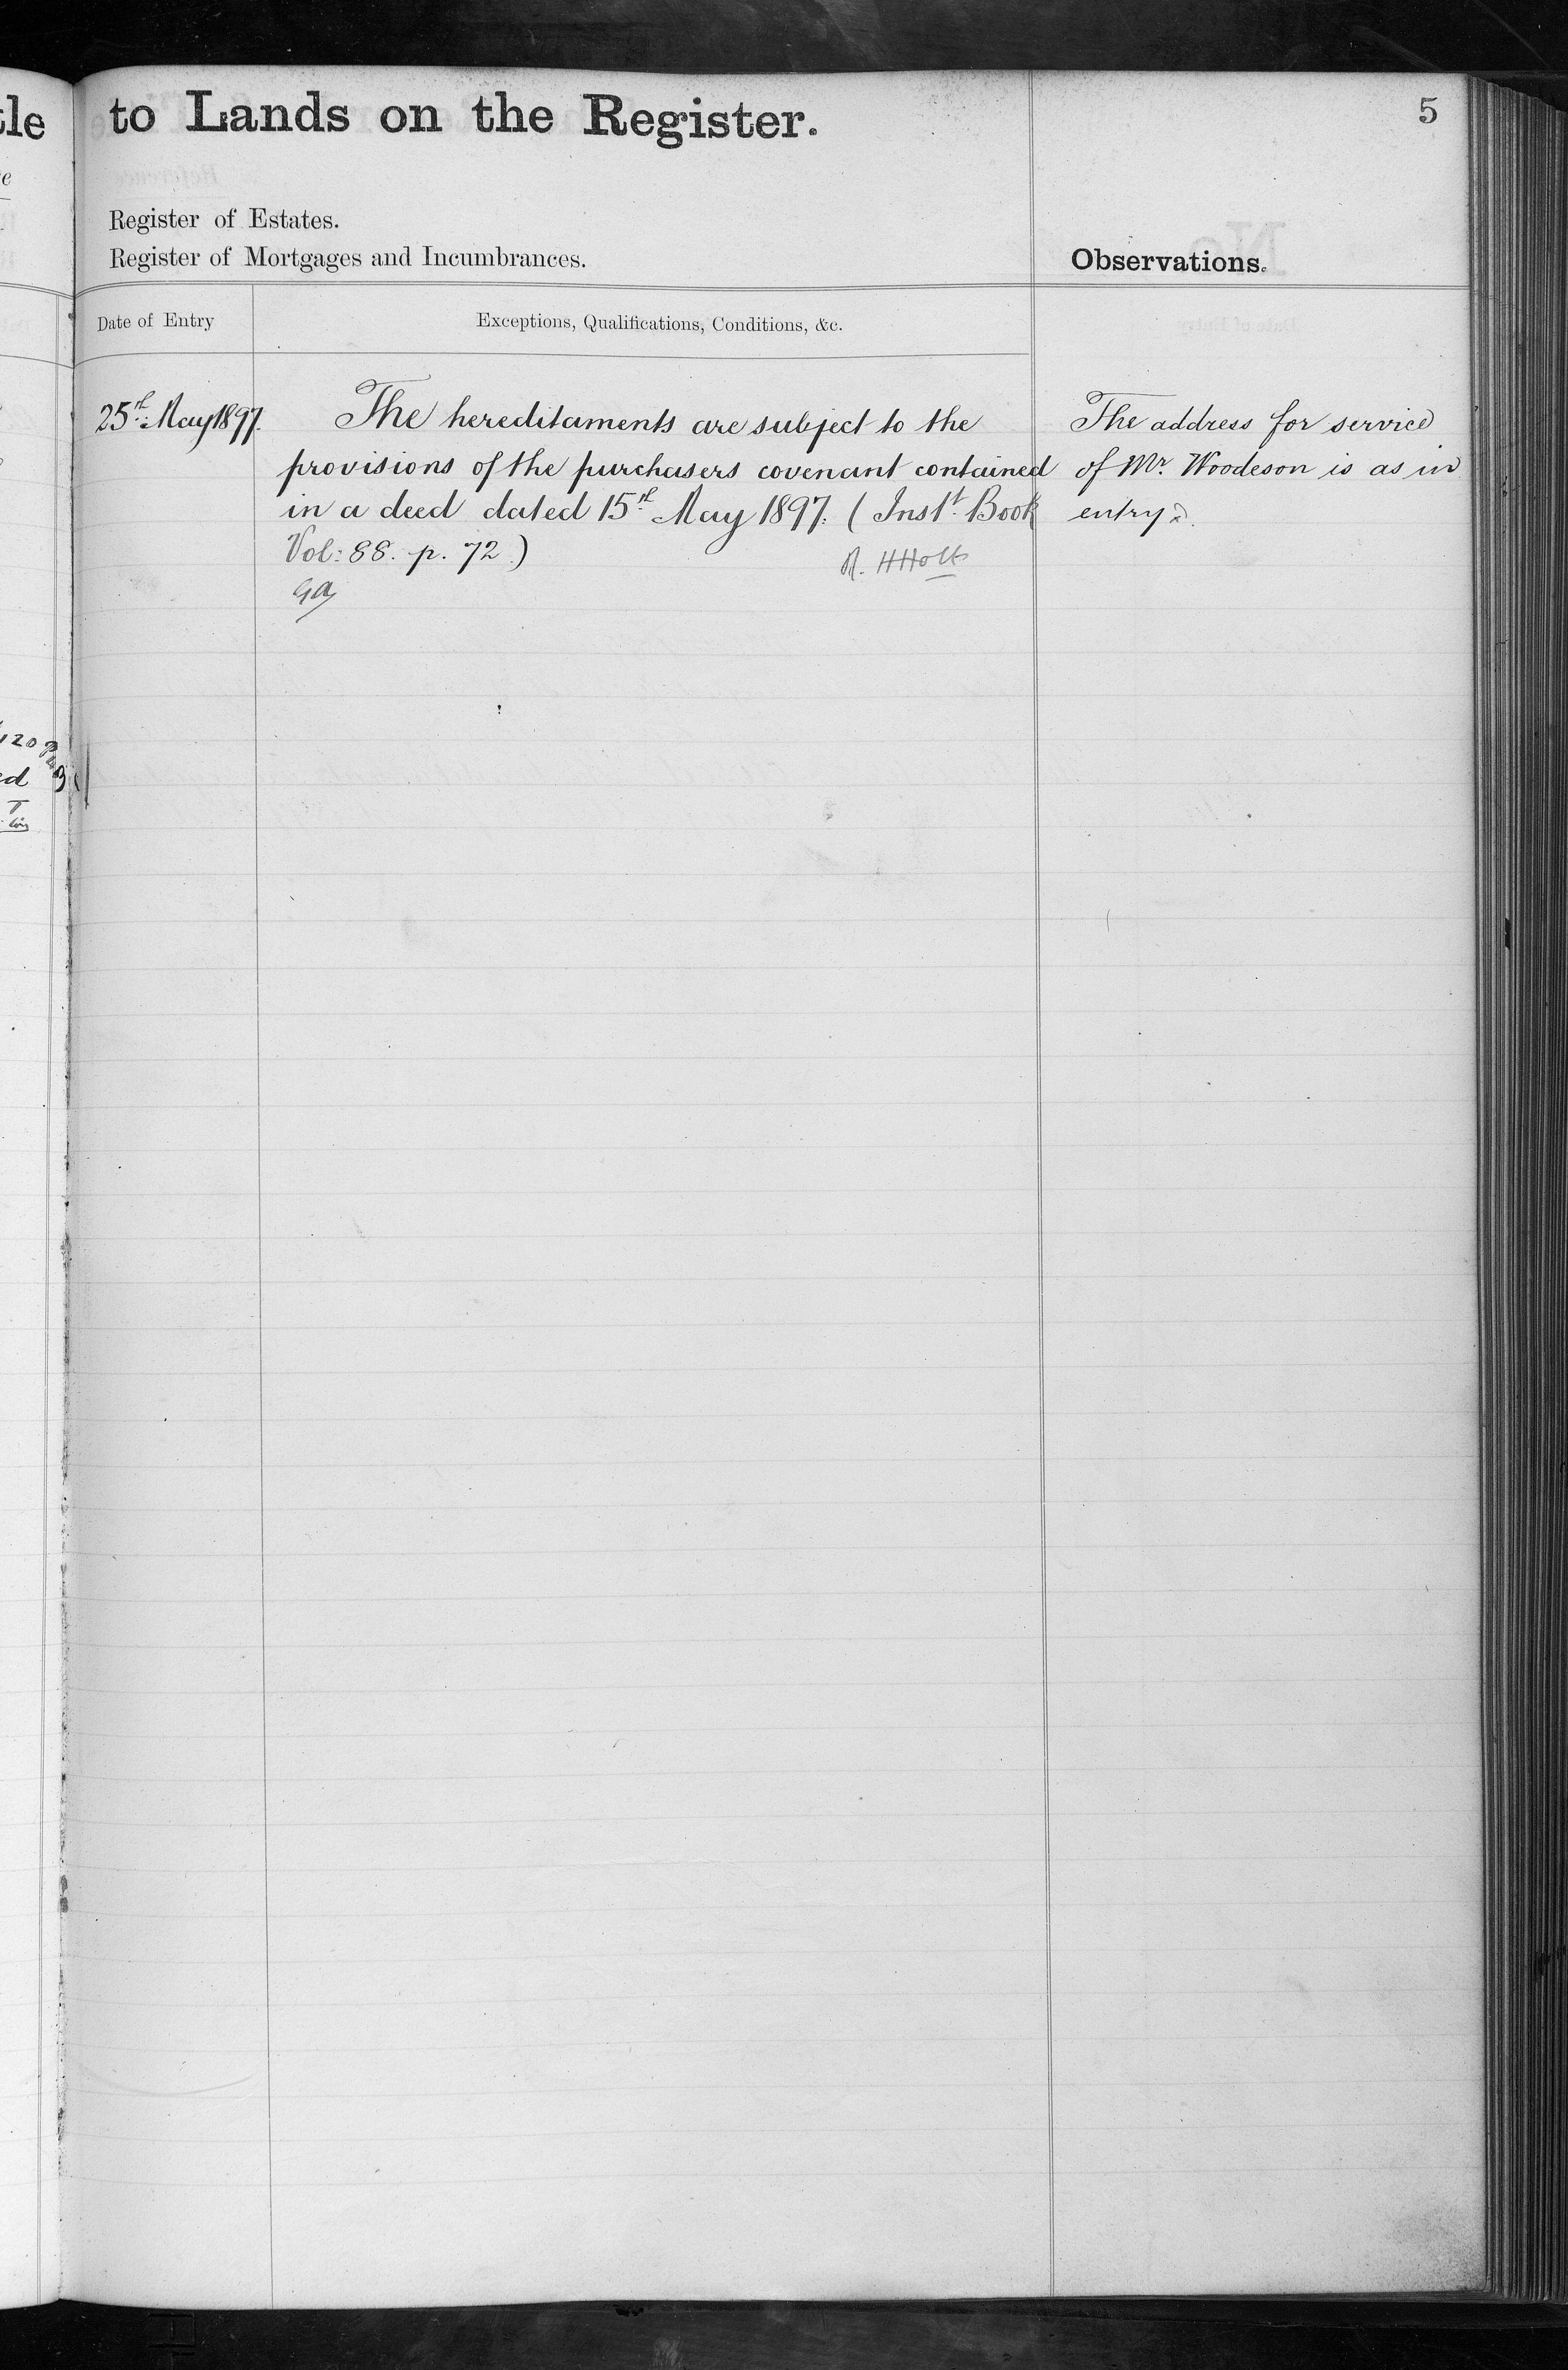 tle
to Lands on the Register.
5
e
Register of Estates.
Register of Mortgages and Incumbrances.
Observations.
Date of Entry
Exceptions, Qualifications, Conditions, &c.
25th May 1897.
The hereditaments are subject to the
provisions of the purchasers covenant contained
in a deed dated 15th May 1897. (Inst. Book
Vol: 88. p. 72.)
R. HHolt
The address for service
of Mr. Woodeson is as in
entry
120
ed